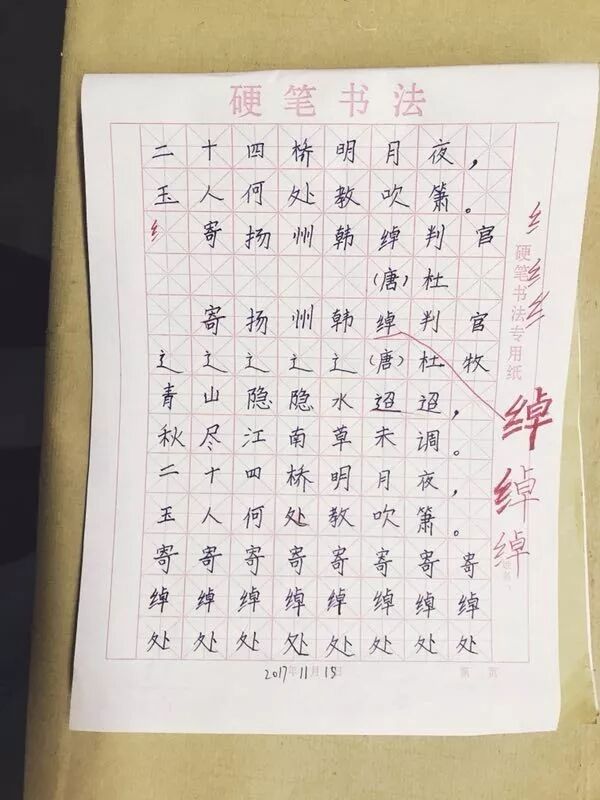 硬笔书法
二十四桥明月夜，
玉人何处教吹箫。
纟寄扬州韩绰判官
(唐)杜
寄扬州韩绰判官
辶辶辶辶辶(唐)杜牧
青山隐隐水迢迢，
秋尽江南草未调。
二十四桥明月夜，
玉人何处教吹箫。
寄寄寄寄寄寄寄寄
绰绰绰绰绰绰绰绰
处处处处处处处处
2017年11月15日 第 页
硬笔书法专用纸
纟
纟纟
纟
绰
绰
绰